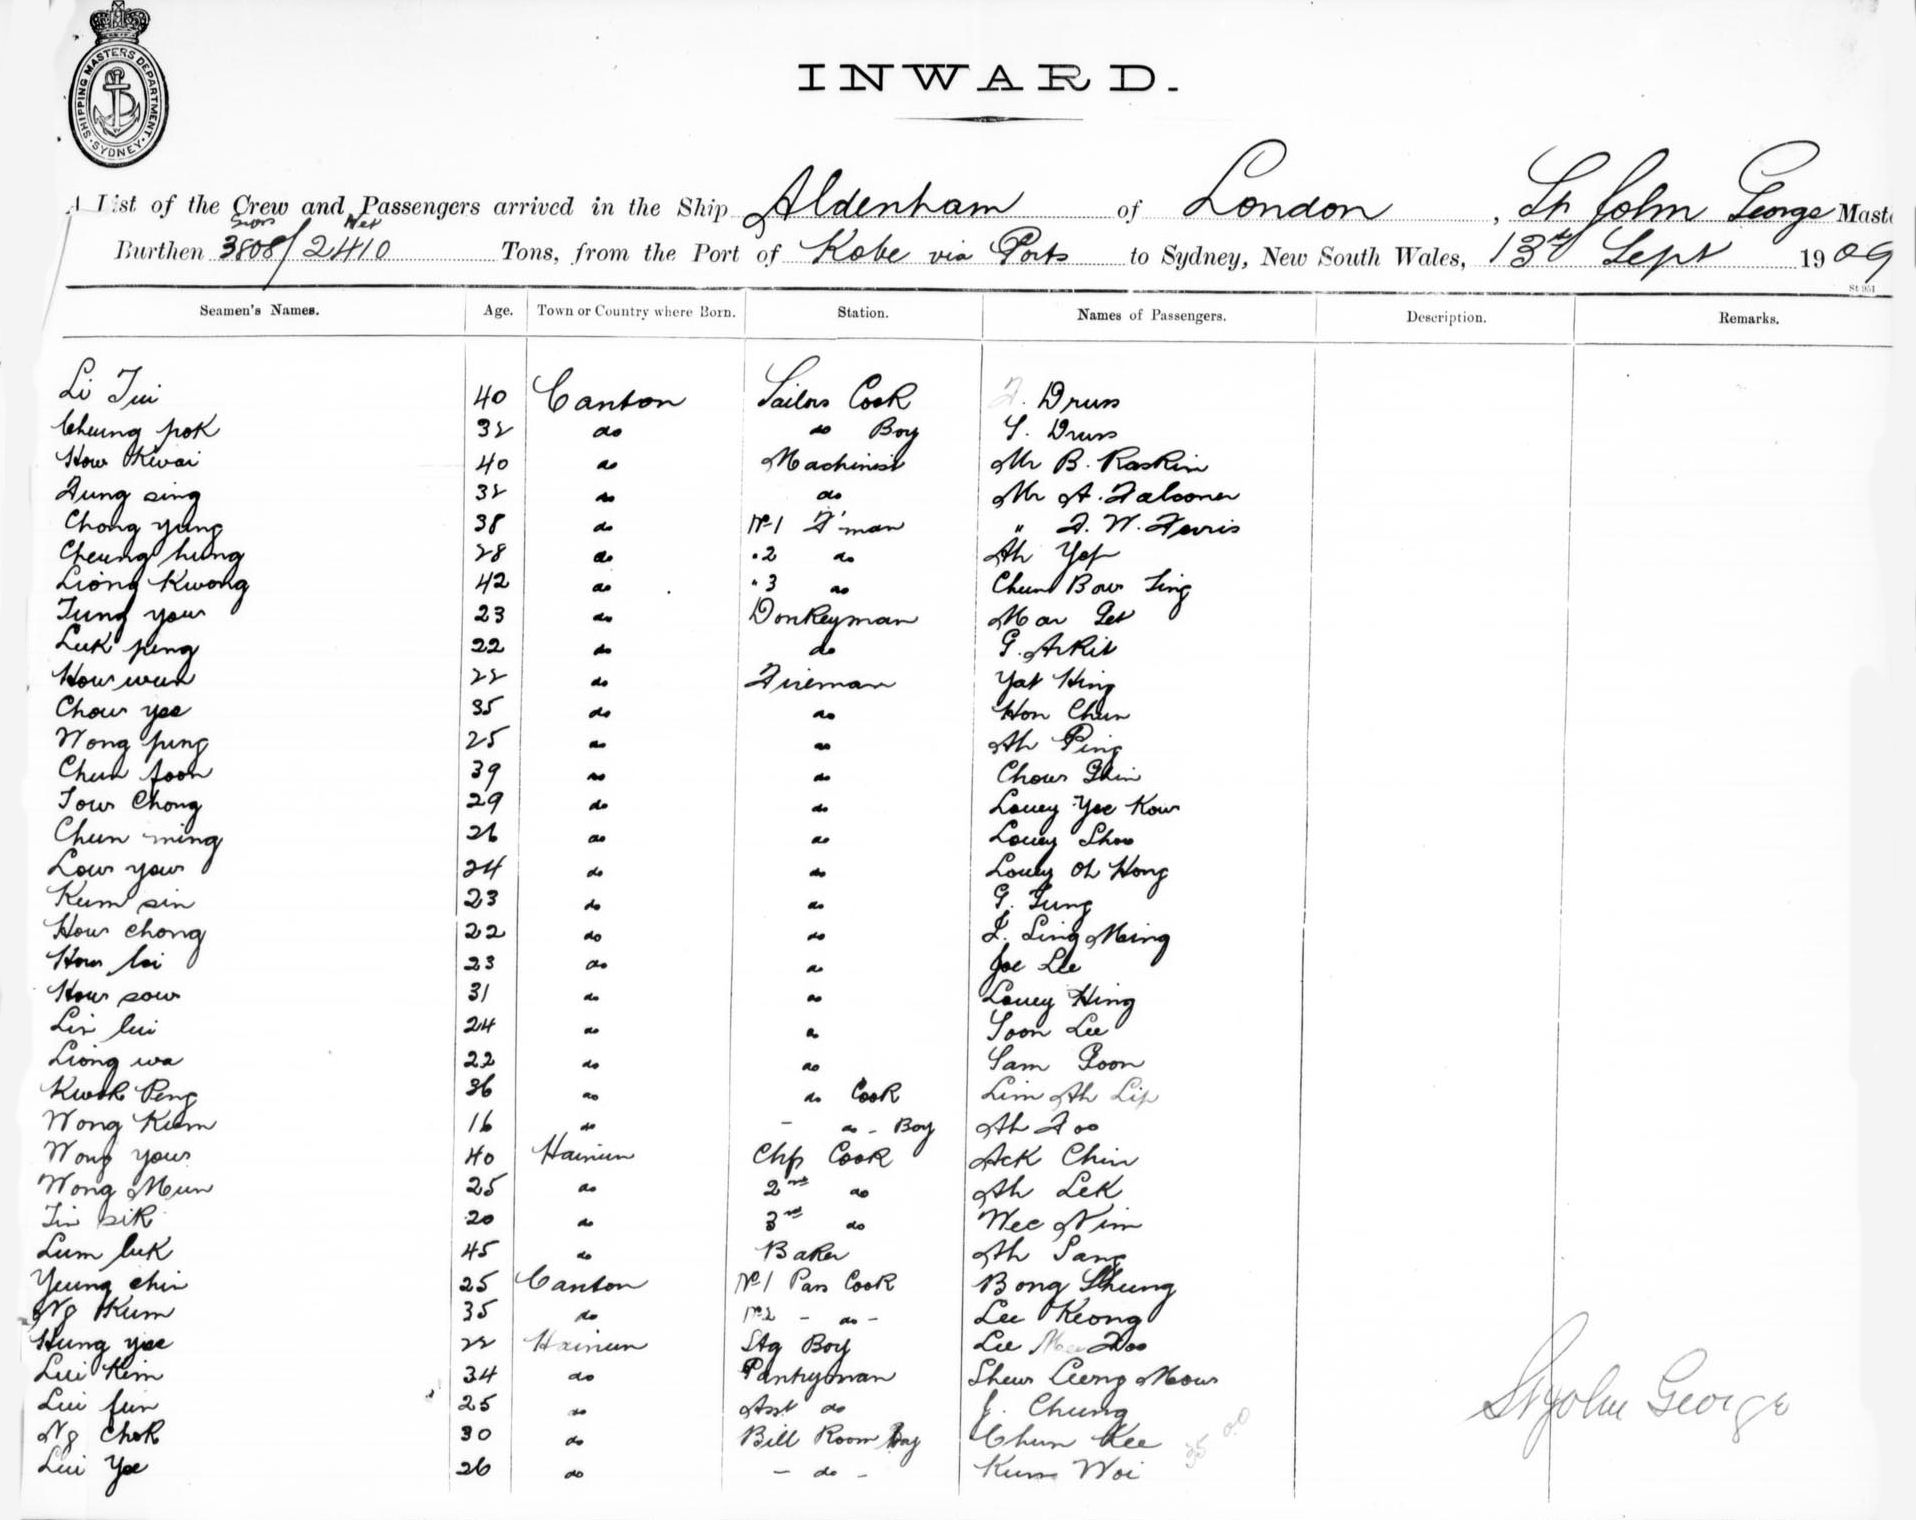 SHIPPING MASTERS DEPARTMENT · SYDNEY ·
INWARD.
A List of the Crew and Passengers arrived in the Ship Aldenham of London, St John George Maste
Burthen Gross 3808 / Net 2410 Tons, from the Port of Kobe via Ports to Sydney, New South Wales, 13th Sept 1909
St 951
Seamen's Names. Age. Town or Country where Born. Station. Names of Passengers. Description. Remarks.
Li Tui 40 Canton Sailors Cook F. Druss
Cheung pok 32 do do Boy S. Druss
How Kwai 40 do Machinist Mr B. Raskin
Fung sing 32 do do Mr A. Falconer
Chong yung 38 do No 1 F'man " F. W. Ferris
Cheung hung 28 do " 2 do Ah Yep
Liong Kwong 42 do " 3 do Chun Bow Sing
Tung yow 23 do Donkeyman Mar Get
Luk peng 22 do do G. Arkit
How wun 22 do Fireman Yat Hing
Chow yee 35 do do Hon Chun
Wong pung 25 do do Ah Ping
Chun foon 39 do do Chow
Tow Chong 29 do do Louey Yee Kow
Chun ming 26 do do Louey Shoo
Low yow 24 do do Louey Oh Hong
Kum sin 23 do do G. Gung
How chong 22 do do Ling Ming
How loi 23 do do Joe Lee
How sow 31 do do Louey Hing
Lin lui 24 do do Soon Lee
Liong wa 22 do do Sam Goon
Kwok Peng 36 do do Cook Lim Ah Lip
Wong Kum 16 do - do - Boy Ah Foo
Wong yow 40 Hainun Chf Cook Ack Chin
Wong Mun 25 do 2nd do Ah Lek
Tin sik 20 do 3rd do Wee Nim
Lum luk 45 do Baker Ah Sang
Yeung chin 25 Canton No 1 Pan Cook Bong Shung
Ng Kum 35 do No 2 - do - Lee Keong
Hung yee 22 Hainun Stg Boy Lee Mee Foo
Lui Kim 34 do Pantryman Shew Leeng Mow
Lui fun 25 do Asst do J. Chung
Ng Chok 30 do Bill Room Boy Chun Kee
Lui Yee 26 do - do - Kum Woi
St John George